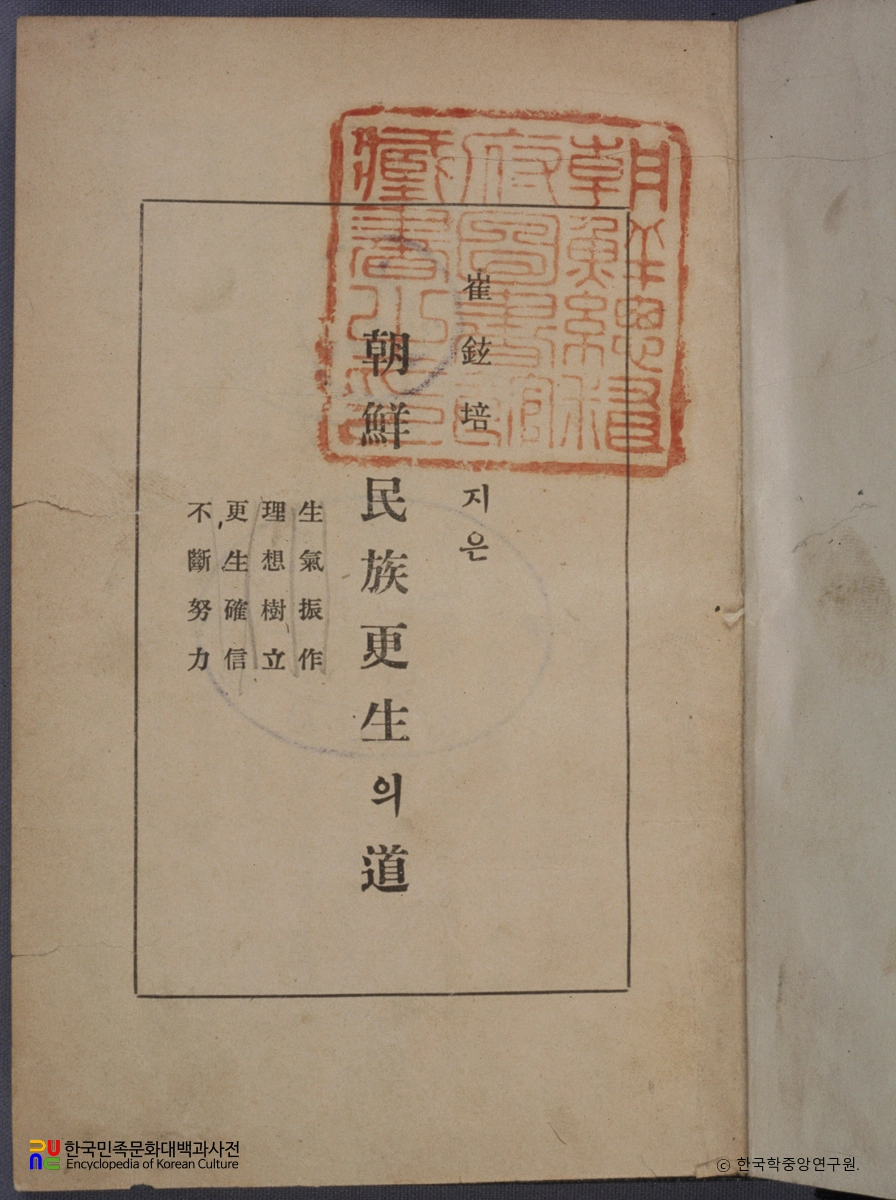 朝鮮總督
府圖書館
藏書之印
崔鉉培 지은
朝鮮民族更生의道
生氣振作
理想樹立
更生確信
不斷努力
한국민족문화대백과사전
Encyclopedia of Korean Culture
ⓒ 한국학중앙연구원.